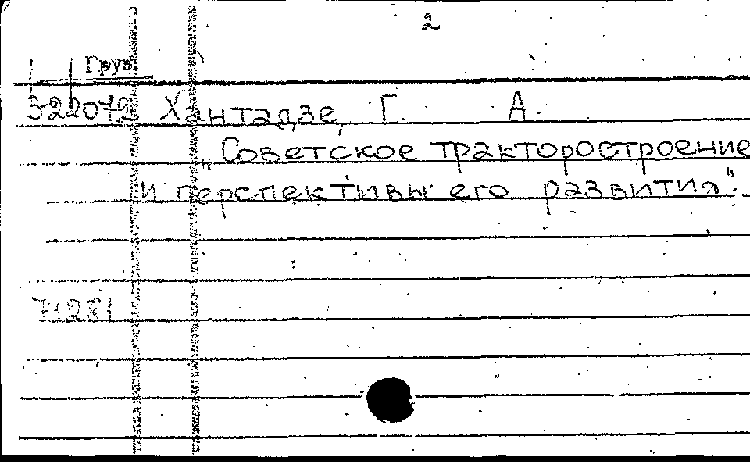 2
Груз.
322072 Хантадзе, Г. А.
„Советское тракторостроение
и перспективы его развития".
71281